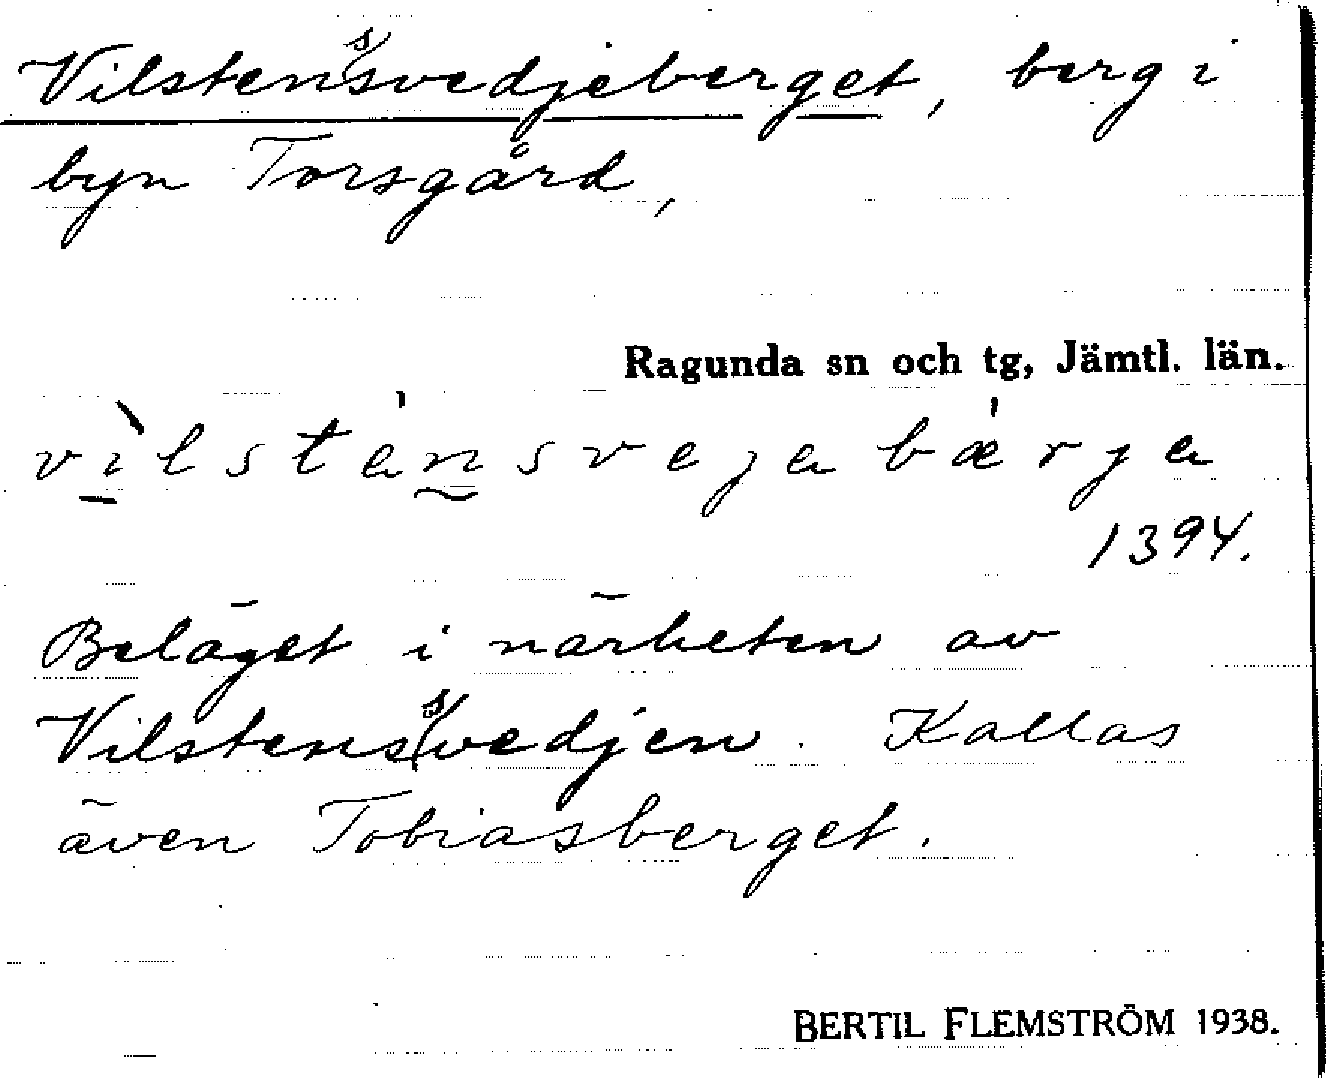 Vilstenssvedjeberget, berg i
byn Torsgård,
Ragunda sn och tg, Jämtl. län.
vìlsténsvejabǽrja
1394.
Beläget i närheten av
Vilstenssvedjen. Kallas
även Tobiasberget.
BERTIL FLEMSTRÖM 1938.